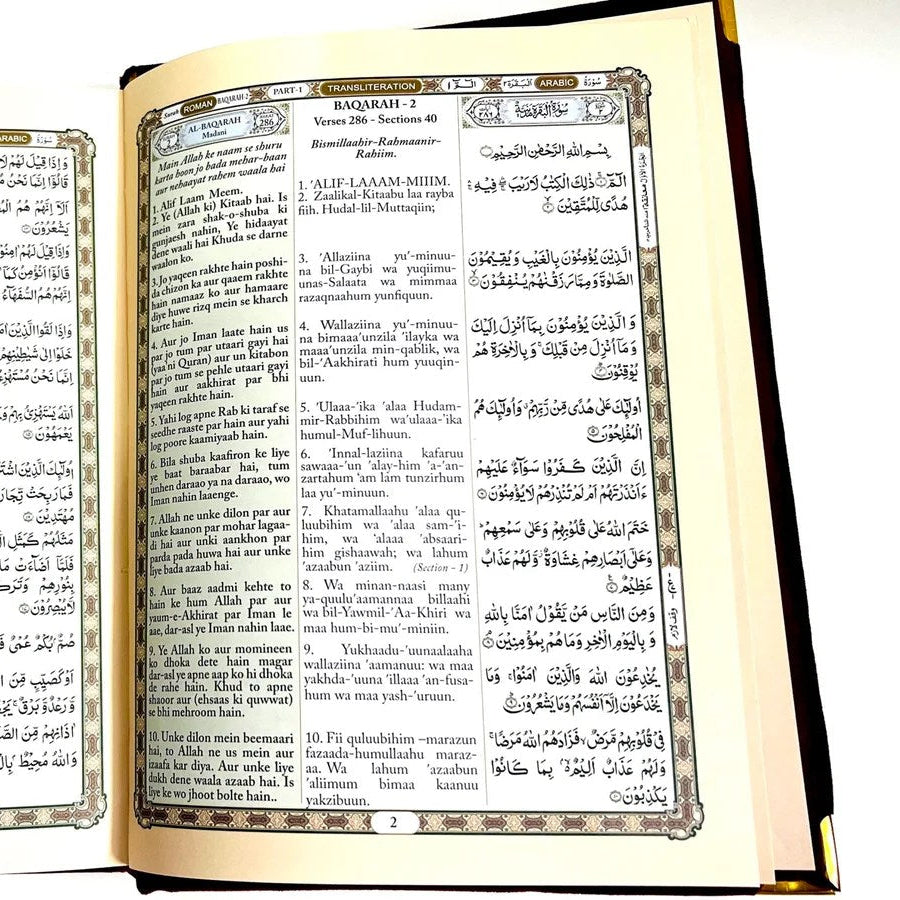 ARABIC سُوْرَة
وَاِذَا قِيْلَ لَهُمْ لَا
قَالُوْٓا اِنَّمَا نَحْنُ
اَلَآ اِنَّهُمْ هُمُ
يَشْعُرُوْنَ
وَاِذَا قِيْلَ لَهُمْ اٰمِنُوْا
قَالُوْٓا اَنُؤْمِنُ كَمَآ
اِنَّهُمْ هُمُ السُّفَهَآءُ
وَاِذَا لَقُوا الَّذِيْنَ
خَلَوْا اِلٰى شَيٰطِيْنِهِمْ
اِنَّمَا نَحْنُ
اَللّٰهُ يَسْتَهْزِئُ بِهِمْ
يَعْمَهُوْنَ
اُولٰٓئِكَ الَّذِيْنَ
فَمَا رَبِحَتْ
مُهْتَدِيْنَ
مَثَلُهُمْ كَمَثَلِ
فَلَمَّآ اَضَآءَتْ
بِنُوْرِهِمْ
لَّا يُبْصِرُوْنَ
صُمٌّۢ بُكْمٌ عُمْيٌ
اَوْ كَصَيِّبٍ مِّنَ
وَّرَعْدٌ وَّبَرْقٌ
اٰذَانِهِمْ مِّنَ
وَاللّٰهُ مُحِيْطٌۢ
Surah ROMAN BAQARAH 2 PART-1 TRANSLITERATION الٓمّٓ ١ اَلْبَقَرَة ٢ ARABIC سُوْرَة
AL-BAQARAH 286
Madani
Main Allah ke naam se shuru
karta hoon jo bada mehar-baan
aur nehaayat rahem waala hai
1. Alif Laam Meem.
2. Ye (Allah ki) Kitaab hai. Is
mein zara shak-o-shuba ki
gunjaesh nahin, Ye hidaayat
dene waali hai Khuda se darne
waalon ko.
3. Jo yaqeen rakhte hain poshi-
da chizon ka aur qaaem rakhte
hain namaaz ko aur hamaare
diye huwe rizq mein se kharch
karte hain.
4. Aur jo Iman laate hain us
par jo tum par utaari gayi hai
(yaa'ni Quran) aur un kitabon
par jo tum se pehle utaari gayi
hain aur aakhirat par bhi
yaqeen rakhte hain.
5. Yahi log apne Rab ki taraf se
seedhe raaste par hain aur yahi
log poore kaamiyaab hain.
6. Bila shuba kaafiron ke liye
ye baat baraabar hai, tum
unhen daraao ya na daraao, wo
Iman nahin laaenge.
7. Allah ne unke dilon par aur
unke kaanon par mohar lagaa-
di hai aur unki aankhon par
parda pada huwa hai aur unke
liye bada azaab hai.
8. Aur baaz aadmi kehte to
hain ke hum Allah par aur
yaum-e-Akhirat par Iman le
aae, dar-asl ye Iman nahin laae.
9. Ye Allah ko aur momineen
ko dhoka dete hain magar
dar-asl ye apne aap ko hi dhoka
de rahe hain. Khud to apne
shaoor aur (ehsaas ki quwwat)
se bhi mehroom hain.
10. Unke dilon mein beemaari
hai, to Allah ne us mein aur
izaafa kar diya. Aur unke liye
dukh dene waala azaab hai. Is
liye ke wo jhoot bolte hain..
BAQARAH - 2
Verses 286 - Sections 40
Bismillaahir-Rahmaanir-
Rahiim.
1. 'ALIF-LAAAM-MIIIM.
2. Zaalikal-Kitaabu laa rayba
fiih. Hudal-lil-Muttaqiin;
3. 'Allaziina yu'-minuu-
na bil-Gaybi wa yuqiimu-
unas-Salaata wa mimmaa
razaqnaahum yunfiquun.
4. Wallaziina yu'-minuu-
na bimaaa'unzila 'ilayka wa
maaa'unzila min-qablik, wa
bil-'Aakhirati hum yuuqin-
uun.
5. 'Ulaaa-'ika 'alaa Hudam-
mir-Rabbihim wa'ulaaa-'ika
humul-Muf-lihuun.
6. 'Innal-laziina kafaruu
sawaaa-'un 'alay-him 'a-'an-
zartahum 'am lam tunzirhum
laa yu'-minuun.
7. Khatamallaahu 'alaa qu-
luubihim wa 'alaa sam-'i-
him, wa 'alaaa 'absaari-
him gishaawah; wa lahum
'azaabun 'aziim. (Section - 1)
8. Wa minan-naasi many
ya-quulu'aamannaa billaahi
wa bil-Yawmil-'Aa-Khiri wa
maa hum-bi-mu'-miniin.
9. Yukhaadu-'uunaalaaha
wallaziina 'aamanuu: wa maa
yakhda-'uuna 'illaaa 'an-fusa-
hum wa maa yash-'uruun.
10. Fii quluubihim –marazun
fazaada-humullaahu maraz-
aa. Wa lahum 'azaabun
'aliimum bimaa kaanuu
yakzibuun.
سُوْرَةُ الْبَقَرَةِ مَدَنِيَّةٌ
بِسْمِ اللّٰهِ الرَّحْمٰنِ الرَّحِيْمِ
الٓمّٓ ۚ ذٰلِكَ الْكِتٰبُ لَا رَيْبَ ۛ فِيْهِ ۛ
هُدًى لِّلْمُتَّقِيْنَ
الَّذِيْنَ يُؤْمِنُوْنَ بِالْغَيْبِ وَيُقِيْمُوْنَ
الصَّلٰوةَ وَمِمَّا رَزَقْنٰهُمْ يُنْفِقُوْنَ
وَالَّذِيْنَ يُؤْمِنُوْنَ بِمَآ اُنْزِلَ اِلَيْكَ
وَمَآ اُنْزِلَ مِنْ قَبْلِكَ ۚ وَبِالْاٰخِرَةِ هُمْ
يُوْقِنُوْنَ
اُولٰٓئِكَ عَلٰى هُدًى مِّنْ رَّبِّهِمْ ۙ وَاُولٰٓئِكَ هُمُ
الْمُفْلِحُوْنَ
اِنَّ الَّذِيْنَ كَفَرُوْا سَوَآءٌ عَلَيْهِمْ
ءَاَنْذَرْتَهُمْ اَمْ لَمْ تُنْذِرْهُمْ لَا يُؤْمِنُوْنَ
خَتَمَ اللّٰهُ عَلٰى قُلُوْبِهِمْ وَعَلٰى سَمْعِهِمْ ؕ
وَعَلٰٓى اَبْصَارِهِمْ غِشَاوَةٌ ؗ وَّلَهُمْ عَذَابٌ
عَظِيْمٌ
وَمِنَ النَّاسِ مَنْ يَّقُوْلُ اٰمَنَّا بِاللّٰهِ
وَبِالْيَوْمِ الْاٰخِرِ وَمَا هُمْ بِمُؤْمِنِيْنَ
يُخٰدِعُوْنَ اللّٰهَ وَالَّذِيْنَ اٰمَنُوْا ۚ وَمَا
يَخْدَعُوْنَ اِلَّآ اَنْفُسَهُمْ وَمَا يَشْعُرُوْنَ
فِيْ قُلُوْبِهِمْ مَّرَضٌ ۙ فَزَادَهُمُ اللّٰهُ مَرَضًا ۚ
وَلَهُمْ عَذَابٌ اَلِيْمٌۢ ۙ بِمَا كَانُوْا
يَكْذِبُوْنَ
2